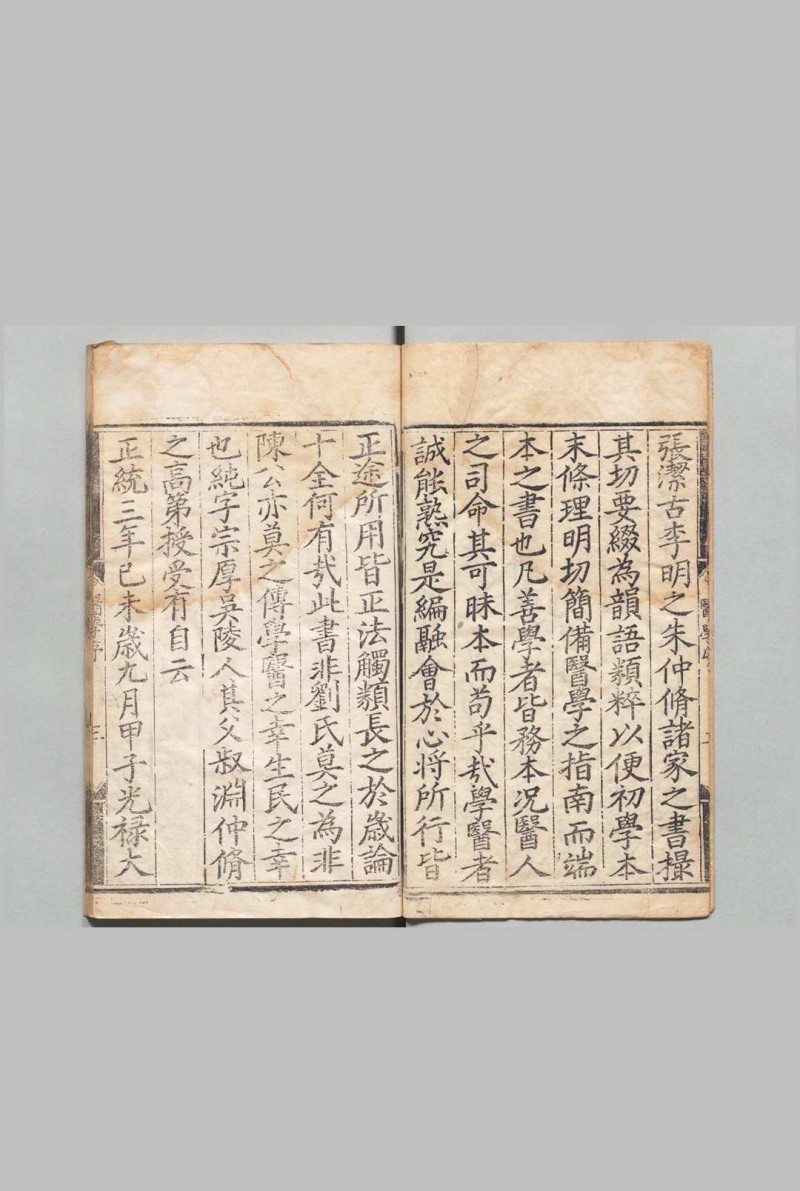 張潔古李明之朱仲脩諸家之書撮
其切要綴為韻語類粹以便初學本
末條理明切簡備醫學之指南而端
本之書也凡善學者皆務本况醫人
之司命其可昧本而苟乎㢤學醫者
誠能熟究是編融會於心将所行皆
正途所用皆正法觸類長之於歲論
十全何有㢤此書非劉氏莫之為非
陳公亦莫之傳學醫之幸生民之幸
也純字宗厚吳陵人其父叔淵仲脩
之高第授受有自云
正統三年己未歲九月甲子光禄大
醫學序
三